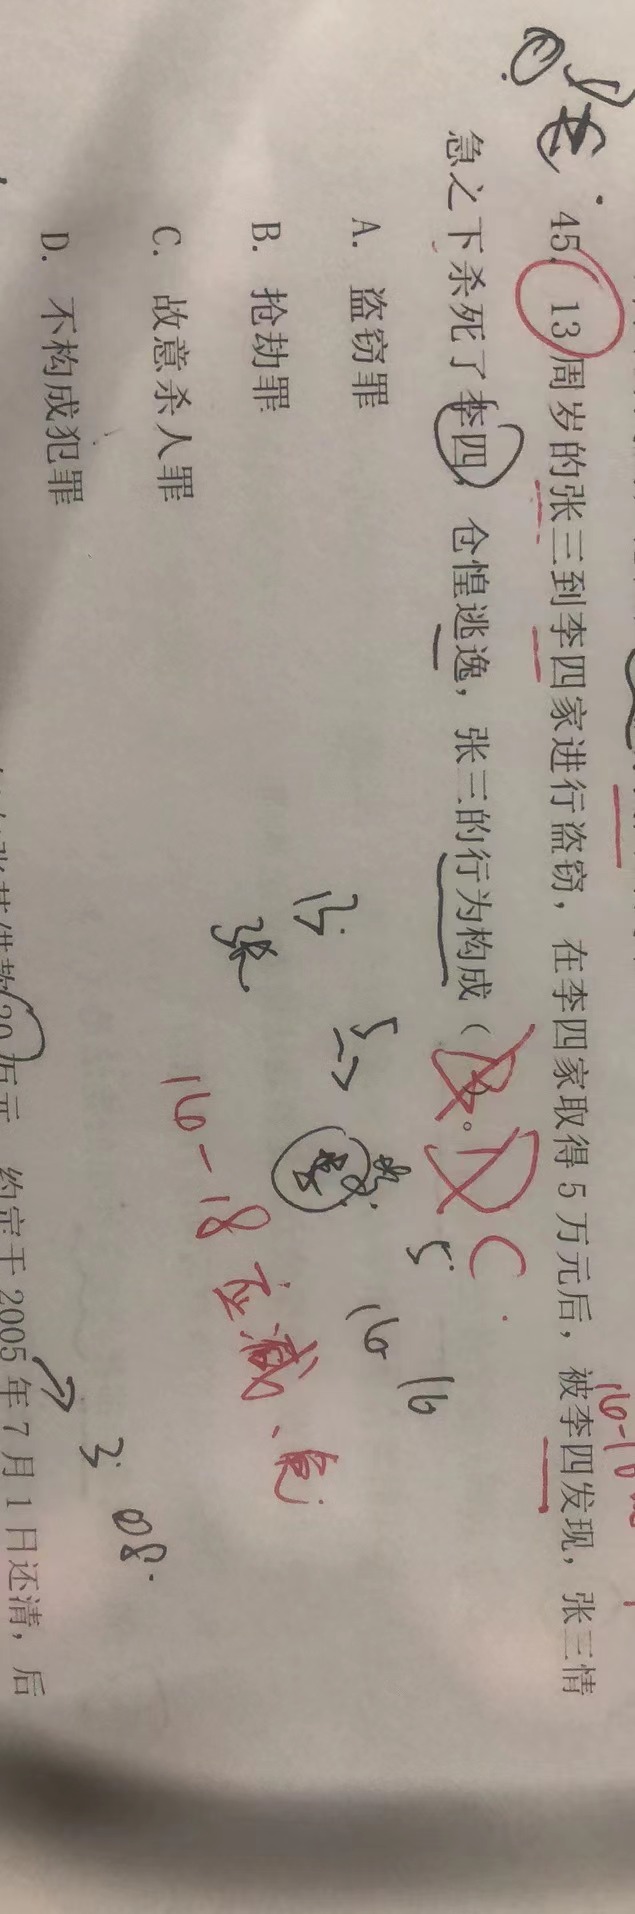 45. 13周岁的张三到李四家进行盗窃，在李四家取得5万元后，被李四发现，张三情
急之下杀死了李四，仓惶逃逸，张三的行为构成（ ）。
C
A. 盗窃罪
B. 抢劫罪
C. 故意杀人罪
D. 不构成犯罪
13.
张
5
16
16
16-18 应减、免
3.
08.
30万元，约定于2005年7月1日还清，后